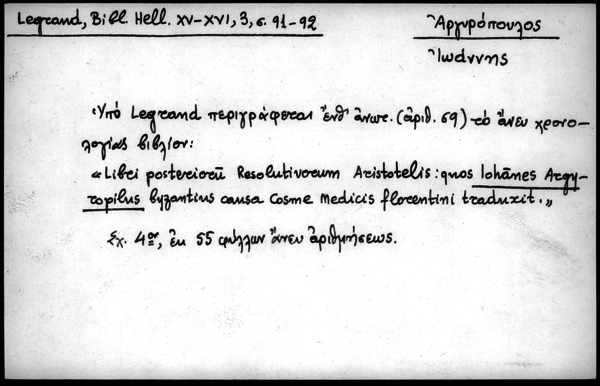 Legrand, Bibl. Hell. XV-XVI, 3, σ. 91-92
Ἀργυρόπουλος
Ἰωάννης
Ὑπό Legrand περιγράφεται ἔνθ' ἀνωτ. (ἀριθ. 69) τό ἄνευ χρονο-
λογίας βιβλίον:
« Libri posteriorū Resolutivorum Aristotelis: quos Iohānes Argy-
ropilus byzantius causa Cosme Medicis florentini traduxit.»
Σχ. 4ον, ἐκ 55 φύλλων ἄνευ ἀριθμήσεως.